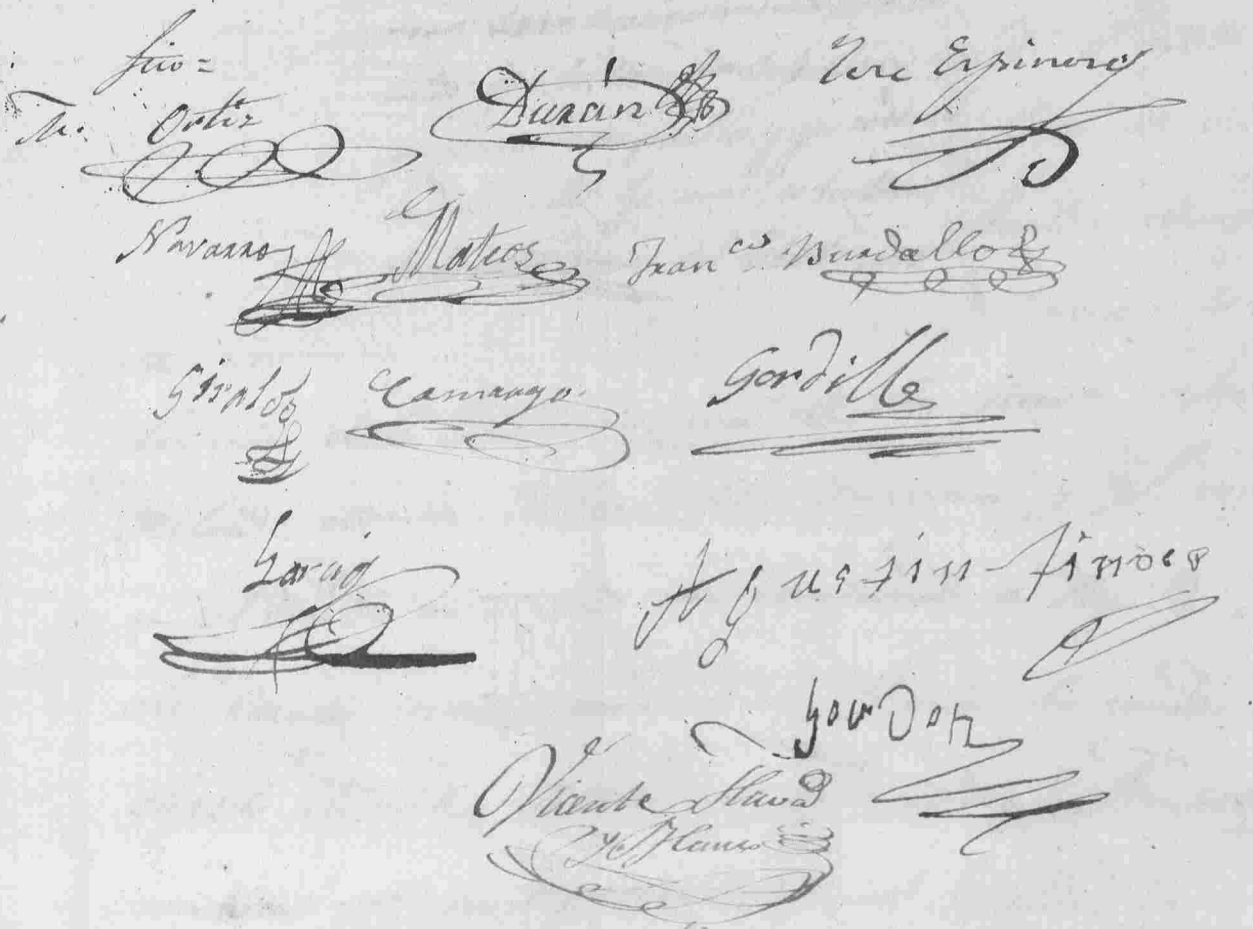 Ortiz Duran Jose Espinosa
Navarro Mateos Fran.co Burdallo
Giraldo Camargo Gordillo
Garcia Agustin Tinoco
Gordon
Vicente